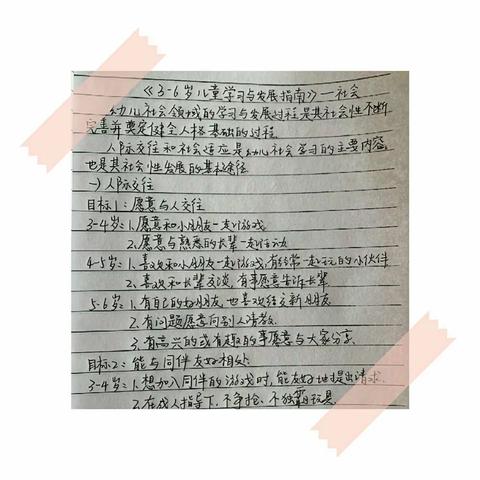 《3-6岁儿童学习与发展指南》—社会
幼儿社会领域的学习与发展过程是其社会性不断
完善并奠定健全人格基础的过程
人际交往和社会适应是幼儿社会学习的主要内容,
也是其社会性发展的基本途径
一)人际交往
目标1:愿意与人交往
3-4岁:1.愿意和小朋友一起游戏
2.愿意与熟悉的长辈一起活动
4-5岁:1.喜欢和小朋友一起游戏,有经常一起玩的小伙伴
2.喜欢和长辈交谈,有事愿意告诉长辈
5-6岁:1.有自己的好朋友,也喜欢结交新朋友
2.有问题愿意向别人请教.
3.有高兴的或有趣的事愿意与大家分享.
目标2:能与同伴友好相处
3-4岁:1.想加入同伴的游戏时,能友好地提出请求.
2.在成人指导下,不争抢、不独霸玩具